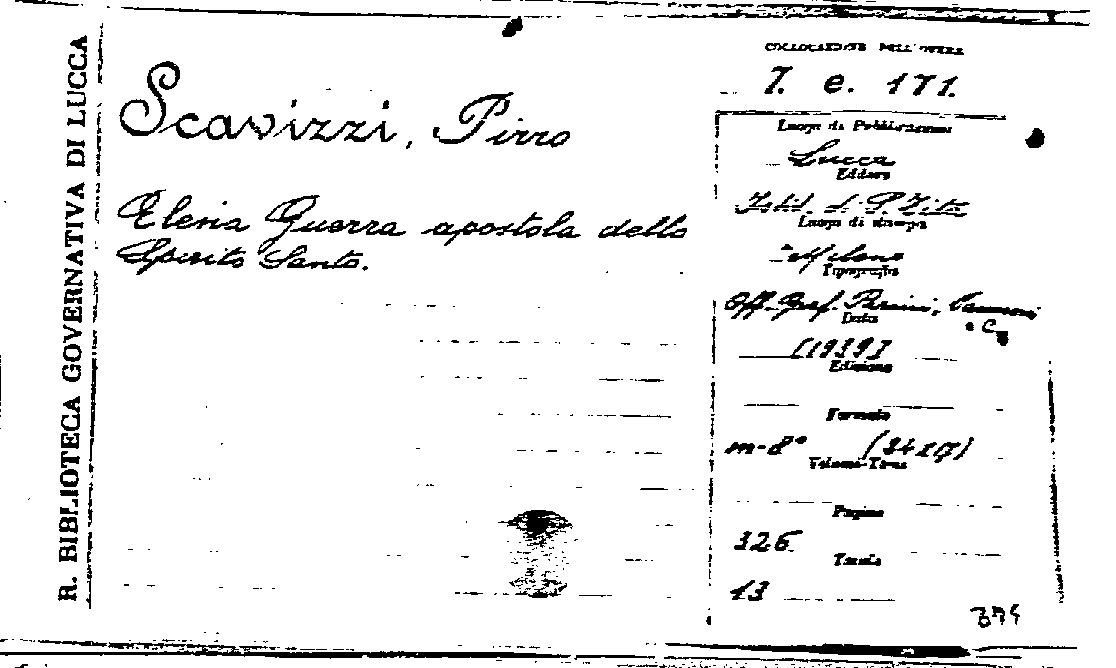 R. BIBLIOTECA GOVERNATIVA DI LUCCA
Scavizzi, Pirro
Elena Guerra apostola dello
Spirito Santo.
COLLOCAZIONE DELL'OPERA
7. e. 171.
Luogo di Pubblicazione
Lucca
Editore
Istit. di S. Zita
Luogo di stampa
Milano
Tipografia
Off. Graf. Perini,
e C.
Data
[1939]
Edizione
Formato
m-8° (24x17)
Volume-Tomo
Pagine
326
Tavole
13